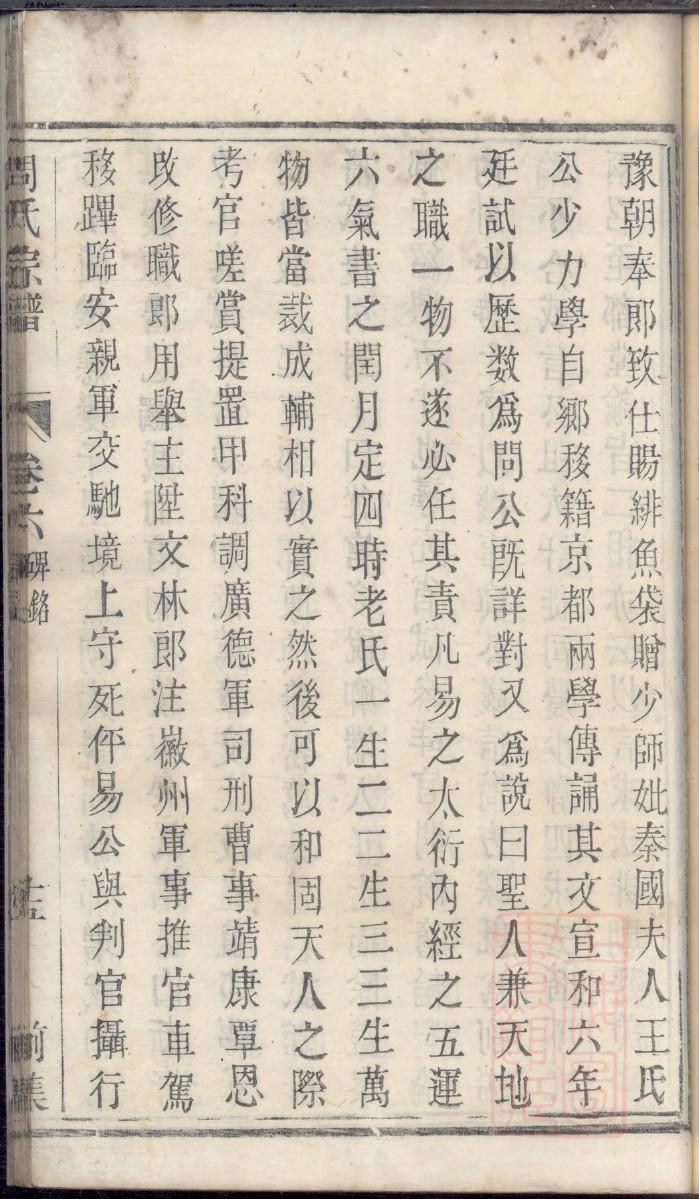 豫朝奉郎致仕賜緋魚袋贈少師妣秦國夫人王氏
公少力學自鄉移籍京都兩學傳誦其文宣和六年
廷試以歷数爲問公旣詳對又爲說曰聖人兼天地
之職一物不遂必任其責凡易之太衍內經之五運
六氣書之閏月定四時老氏一生二二生三三生萬
物皆當裁成輔相以實之然後可以和固天人之際
考官嗟賞提置甲科調廣德軍司刑曹事靖康覃恩
改修職郎用舉主陞文林郎注徽州軍事推官車駕
移蹕臨安親軍交馳境上守死伻易公與判官攝行
周氏宗譜
卷六
碑銘
前集